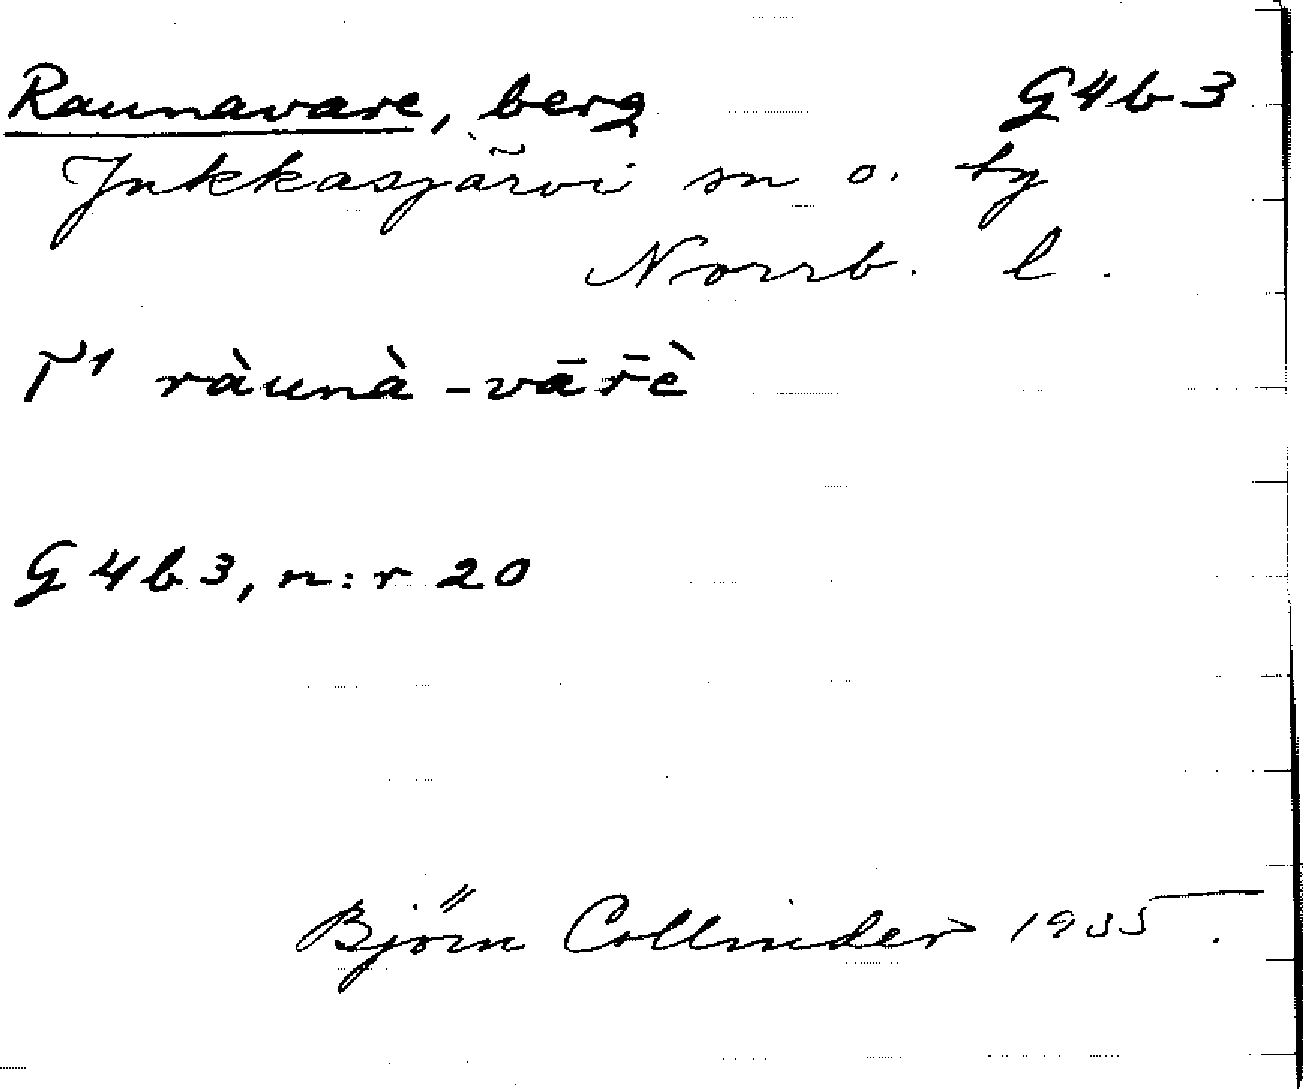 Raunavare, berg G4b3
Jukkasjärvi sn o. by
Norrb. l.
Γ¹ ràunà-vār̄è
G4b3, n:r 20
Björn Collinder 1935.